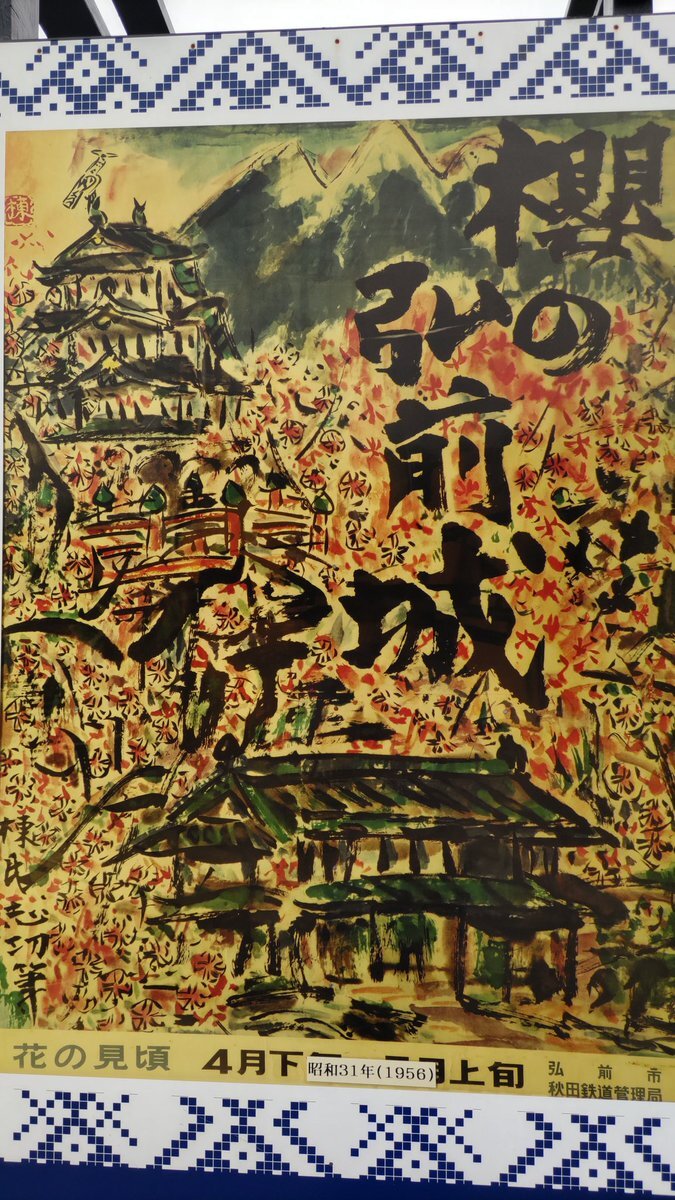 櫻の
弘前
城
棟
棟方志功筆
花の見頃
4月下旬 5月上旬
昭和31年(1956)
弘前市
秋田鉄道管理局